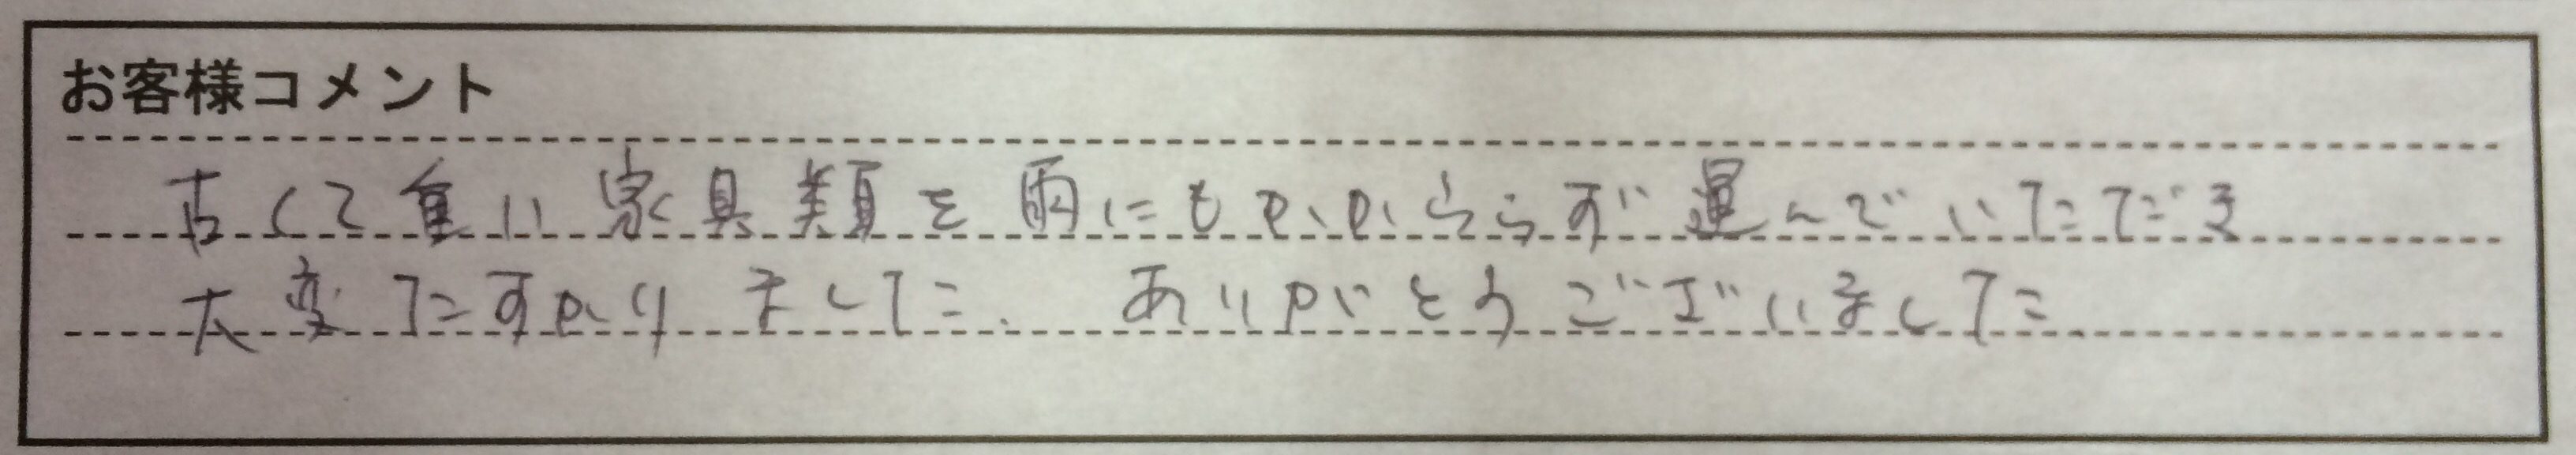 お客様コメント
古くて重い家具類を雨にもかかわらず運んでいただき
大変たすかりました。ありがとうございました